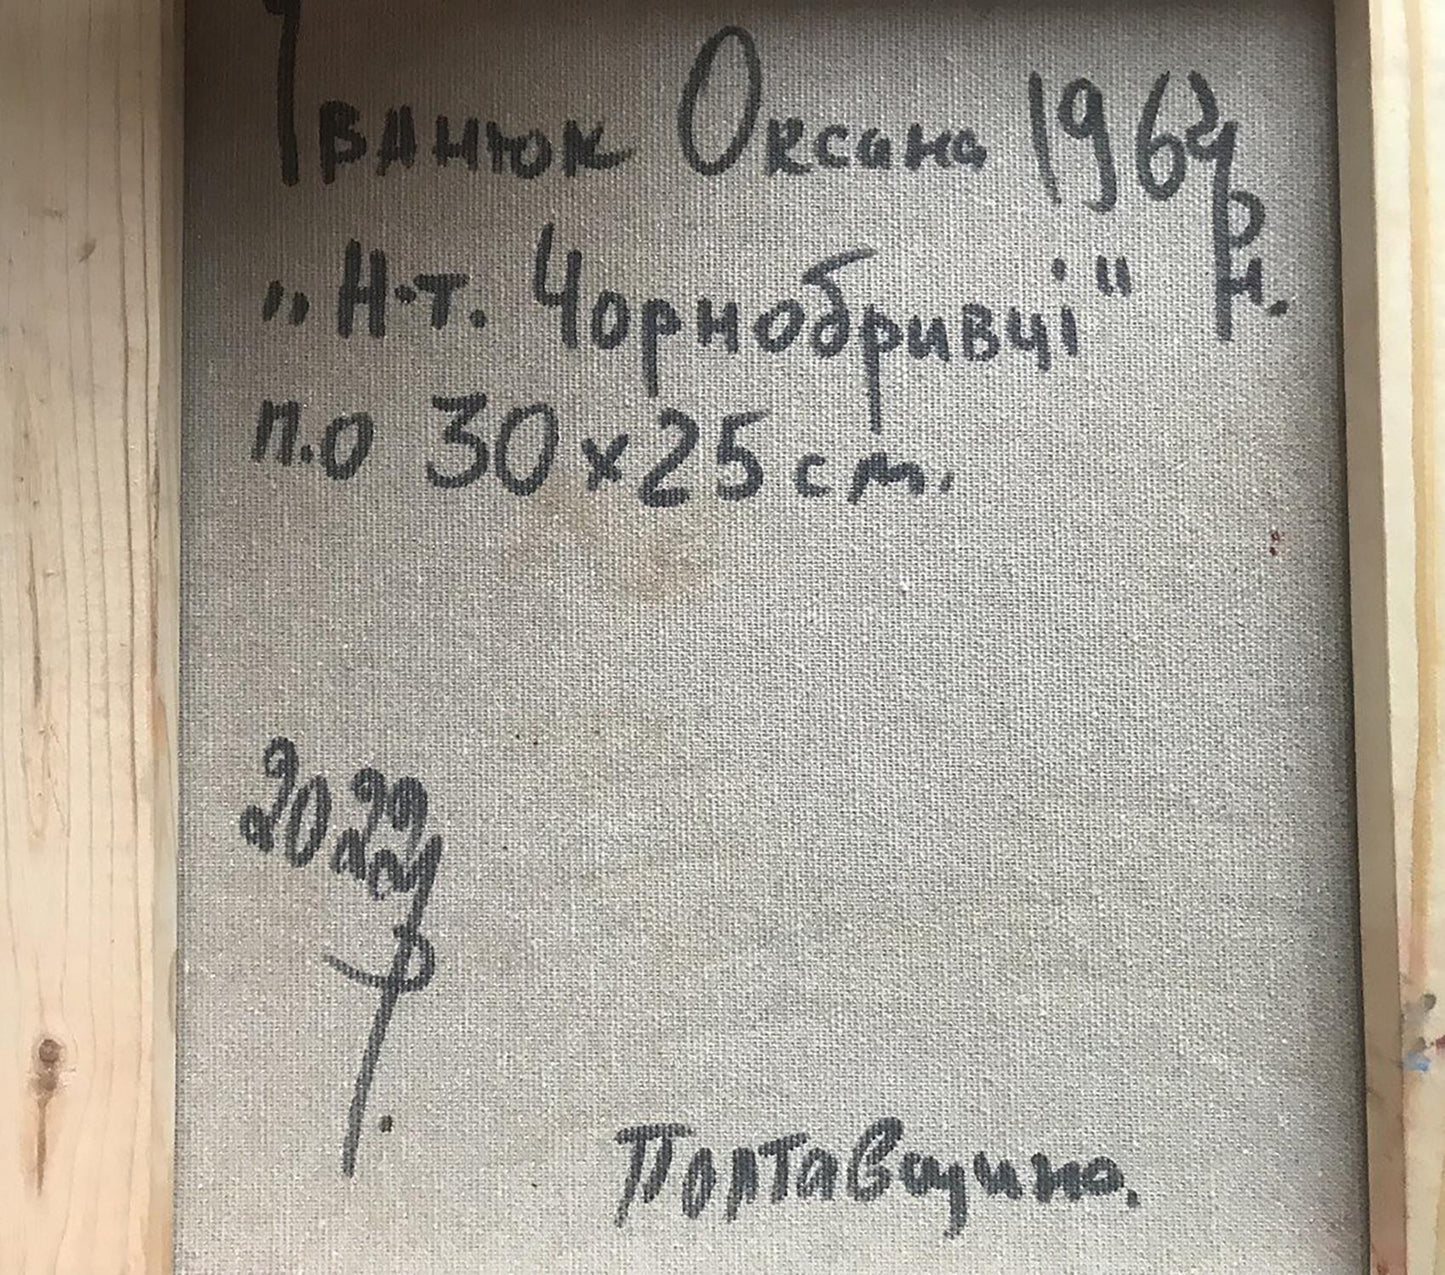 Іванюк Оксана 1964 р.н.
„Н-т. Чорнобривці"
п.о 30х25см.
2022 р.
Полтавщина.